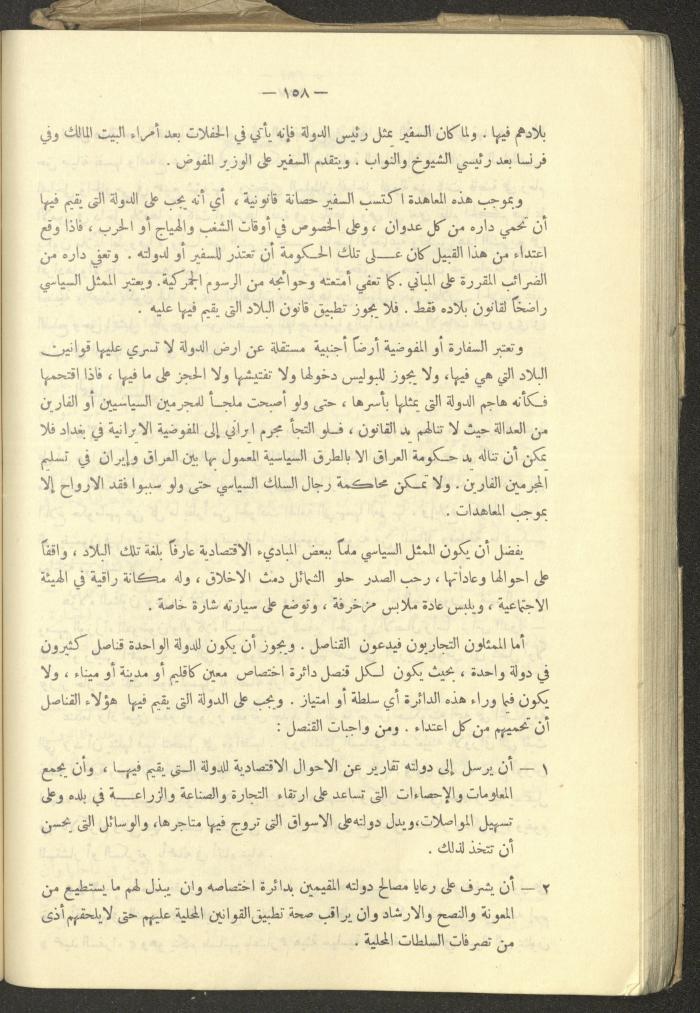 — ١٥٨ —
بلادهم فيها . ولما كان السفير يمثل رئيس الدولة فإنه يأتي في الحفلات بعد أمراء البيت المالك وفي
فرنسا بعد رئيسي الشيوخ والنواب . ويتقدم السفير على الوزير المفوض .
وبموجب هذه المعاهدة اكتسب السفير حصانة قانونية ، أي أنه يجب على الدولة التي يقيم فيها
أن تحمي داره من كل عدوان ، وعلى الخصوص في أوقات الشغب والهياج أو الحرب ، فاذا وقع
اعتداء من هذا القبيل كان عـــلى تلك الحكومة أن تعتذر للسفير أو لدولته . وتعفي داره من
الضرائب المقررة على المباني . كما تعفي أمتعته وحوائجه من الرسوم الجمركية. ويعتبر الممثل السياسي
راضخاً لقانون بلاده فقط . فلا يجوز تطبيق قانون البلاد التي يقيم فيها عليه .
وتعتبر السفارة أو المفوضية أرضاً أجنبية مستقلة عن ارض الدولة لا تسري عليها قوانين
البلاد التي هي فيها، ولا يجوز للبوليس دخولها ولا تفتيشها ولا الحجز على ما فيها ، فاذا اقتحمها
فكأنه هاجم الدولة التي يمثلها بأسرها ، حتى ولو أصبحت ملجأ للمجرمين السياسيين أو الفارين
من العدالة حيث لا تنالهم يد القانون ، فـلو التجأ مجرم ايراني إلى المفوضية الايرانية في بغداد فلا
يمكن أن تناله يد حكومة العراق الا بالطرق السياسية المعمول بها بين العراق وإيران في تسليم
المجرمين الفارين . ولا تمكن محاكمة رجال السلك السياسي حتى ولو سببوا فقد الارواح إلا
بموجب المعاهدات .
يفضل أن يكون الممثل السياسي ملماً ببعض المباديء الاقتصادية عارفاً بلغة تلك البلاد ، واقفاً
على احوالها وعاداتها ، رحب الصدر حلو الشمائل دمث الاخلاق ، وله مكانة راقية في الهيئة
الاجتماعية ، ويلبس عادة ملابس مزخرفة ، وتوضع على سيارته شارة خاصة .
أما الممثلون التجاريون فيدعون القناصل . ويجوز أن يكون للدولة الواحدة قناصل كثيرون
في دولة واحدة ، بحيث يكون لكل قنصل دائرة اختصاص معين كاقليم أو مدينة أو ميناء ، ولا
يكون فيما وراء هذه الدائرة أي سلطة أو امتياز . ويجب على الدولة التي يقيم فيها هؤلاء القناصل
أن تحميهم من كل اعتداء . ومن واجبات القنصل :
١ — أن يرسل إلى دولته تقارير عن الاحوال الاقتصادية للدولة التي يقيم فيهـا ، وأن يجمع
المعلومات والإحصاءات التي تساعد على ارتقاء التجارة والصناعة والزراعـــة في بلده وعلى
تسهيل المواصلات، ويدل دولته على الاسواق التي تروج فيها متاجرها، والوسائل التي يحسن
أن تتخذ لذلك .
٢ — أن يشرف على رعايا مصالح دولته المقيمين بدائرة اختصاصه وان يبذل لهم ما يستطيع من
المعونة والنصح والارشاد وان يراقب صحة تطبيق القوانين المحلية عليهم حتى لا يلحقهم أذى
من تصرفات السلطات المحلية .